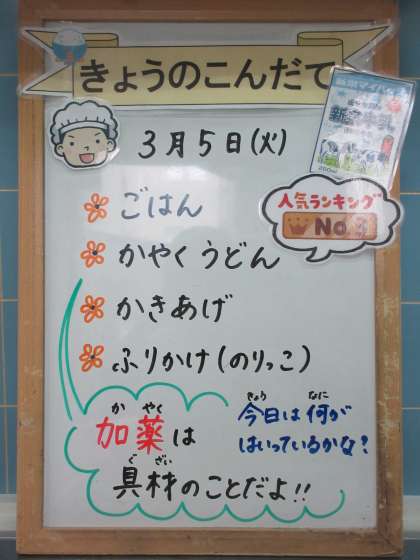 きょうのこんだて
3月5日(火)
人気ランキング
No.
ごはん
かやくうどん
かきあげ
ふりかけ(のりっこ)
かやく
加薬は
ぐざい
具材のことだよ!!
きょう なに
今日は何が
はいっているかな?